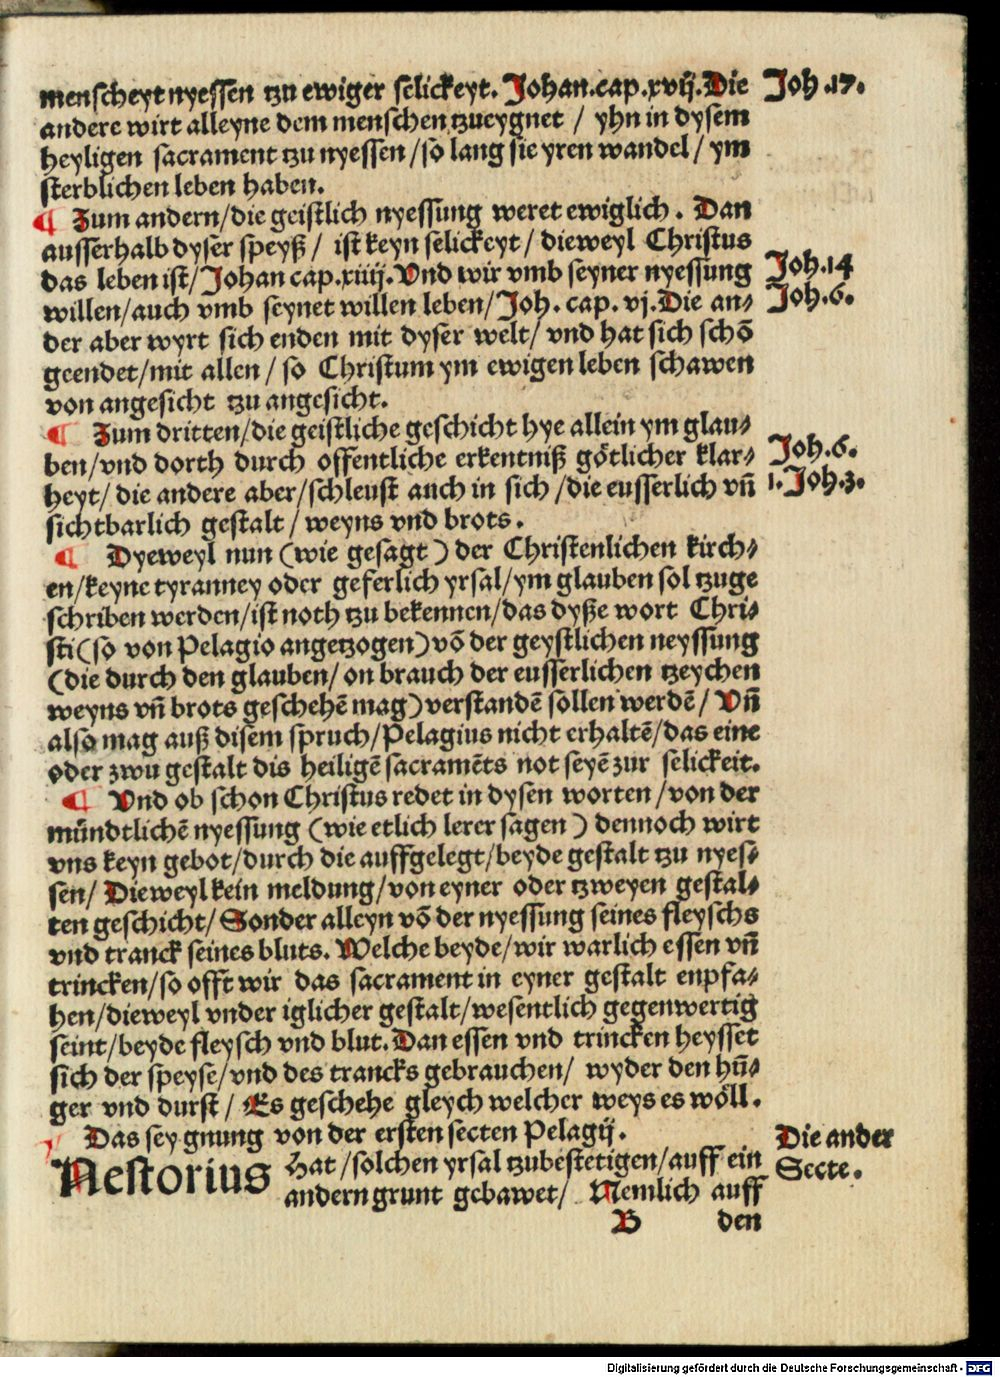 menscheyt nyessen tzu ewiger selickeyt. Johan.cap.xvij.Die
Joh.17.
andere wirt alleyne dem menschen tzueygnet / yhn in dysem
heyligen sacrament tzu nyessen/so lang sie yren wandel/ ym
sterblichen leben haben.
¶ Zum andern/die geistlich nyessung weret ewiglich. Dan
ausserhalb dyser speyß/ ist keyn selickeyt/ dieweyl Christus
das leben ist/Johan cap.xiiij.Vnd wir vmb seyner nyessung
Joh.14
willen/auch vmb seynet willen leben/Joh. cap. vj.Die an⸗
Joh.6.
der aber wyrt sich enden mit dyser welt/ vnd hat sich schō
geendet/mit allen/ so Christum ym ewigen leben schawen
von angesicht tzu angesicht.
¶ Zum dritten/die geistliche geschicht hye allein ym glau⸗
ben/vnd dorth durch offentliche erkentniß götlicher klar⸗
Joh.6.
heyt/ die andere aber/schleust auch in sich /die eusserlich vñ
1.Joh.3.
sichtbarlich gestalt/ weyns vnd brots.
¶ Dyeweyl nun (wie gesagt) der Christenlichen kirch⸗
en/keyne tyranney oder geferlich yrsal/ym glauben sol tzuge
schriben werden/ist noth tzu bekennen/das dyße wort Chri⸗
sti(so von Pelagio angetzogen)vō der geystlichen neyssung
(die durch den glauben/on brauch der eusserlichen tzeychen
weyns vñ brots geschehē mag)verstandē sollen werdē/ Vñ
also mag auß disem spruch/Pelagius nicht erhaltē/das eine
oder zwu gestalt dis heiligē sacramēts not seyē zur selickeit.
¶ Vnd ob schon Christus redet in dysen worten/von der
mündtlichē nyessung (wie etlich lerer sagen) dennoch wirt
vns keyn gebot/durch die auffgelegt/beyde gestalt tzu nyes⸗
sen/ Dieweyl kein meldung/von eyner oder tzweyen gestal⸗
ten geschicht/ Sonder alleyn vō der nyessung seines fleyschs
vnd tranck seines bluts. Welche beyde/wir warlich essen vñ
trincken/so offt wir das sacrament in eyner gestalt enpfa⸗
hen/dieweyl vnder iglicher gestalt/wesentlich gegenwertig
seint/beyde fleysch vnd blut.Dan essen vnd trincken heysset
sich der speyse/vnd des trancks gebrauchen/ wyder den hū⸗
ger vnd durst/ Es geschehe gleych welcher weys es wöll.
Das sey gnung von der ersten secten Pelagij.
Die ander
Secte.
Nestorius Hat/solchen yrsal tzubestetigen/auff ein
andern grunt gebawet/ Nemlich auff
B den
Digitalisierung gefördert durch die Deutsche Forschungsgemeinschaft - DFG